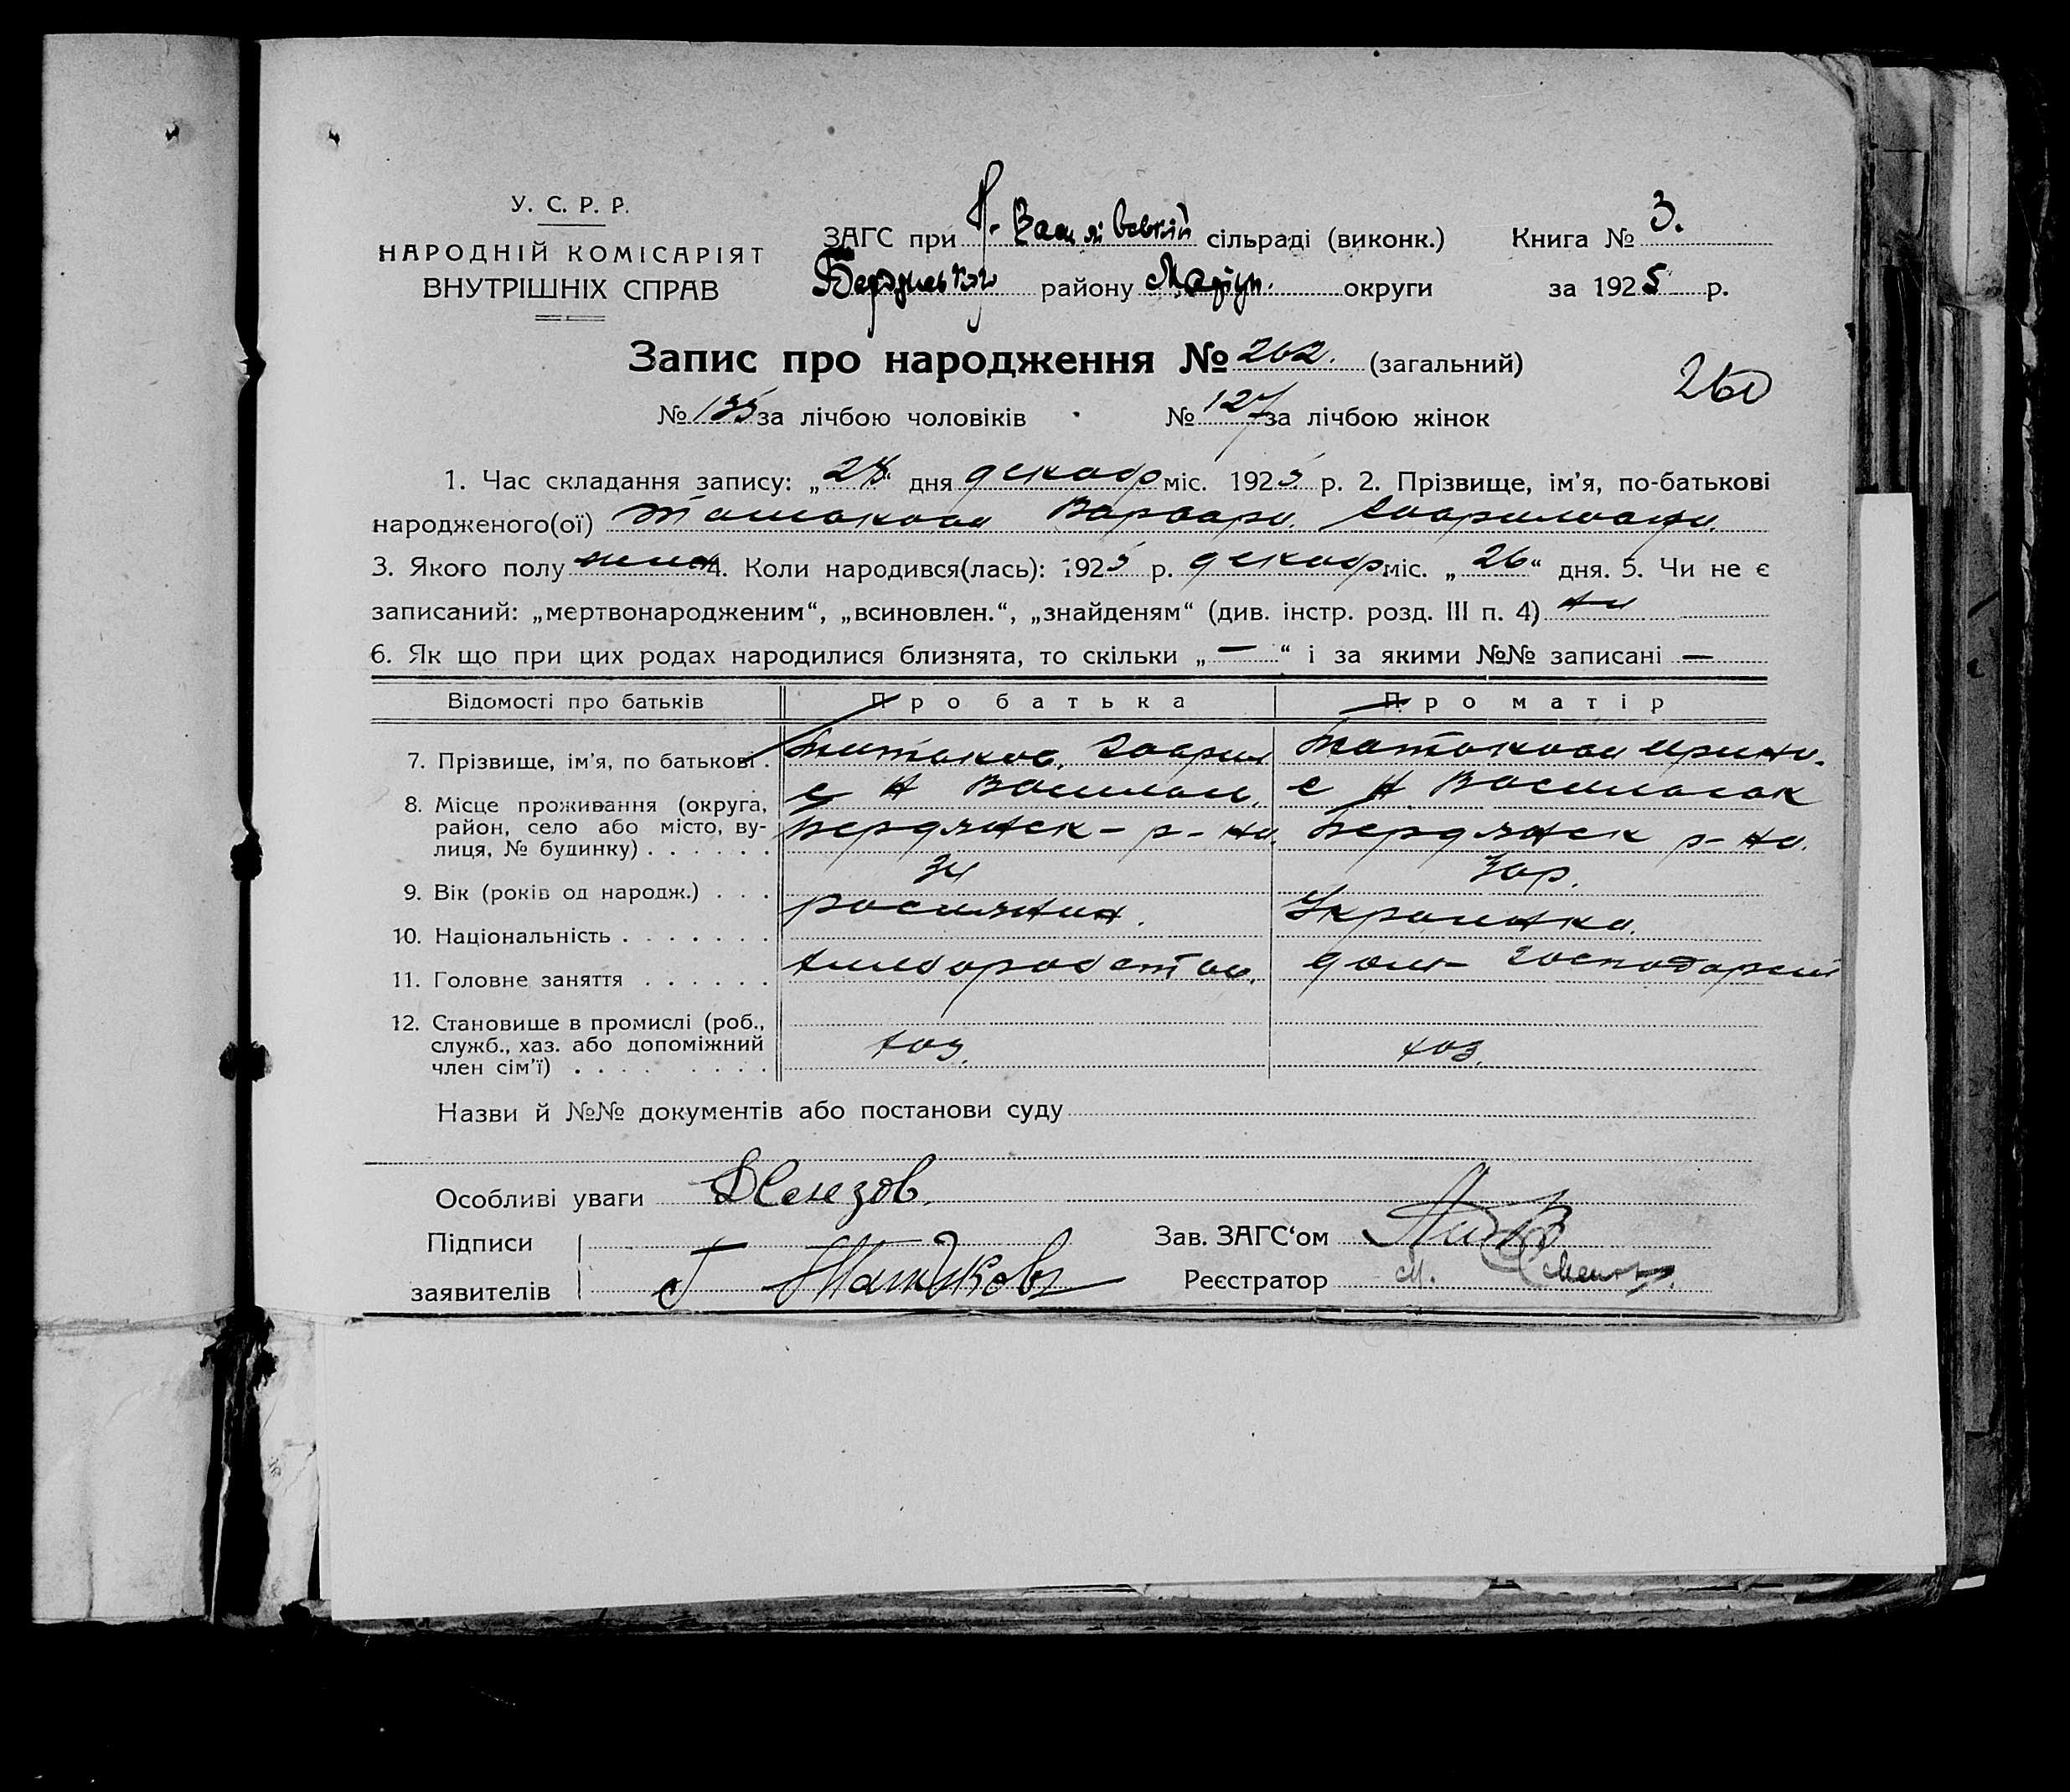 У. С. Р. Р.
НАРОДНІЙ КОМІСАРІЯТ
ВНУТРІШНІХ СПРАВ
ЗАГС при Н-Василівській сільраді (виконк.) Книга № 3.
Бердянського району Маріуп. округи за 1925 р.
Запис про народження № 262. (загальний)
260
№ 135 за лічбою чоловіків № 127 за лічбою жінок
1. Час складання запису: „28“ дня декабр міс. 1925 р. 2. Прізвище, ім'я, по-батькові
народженого(ої) Варвара Гавриловна
3. Якого полу жен 4. Коли народився(лась): 1925 р. декабр міс. „26“ дня. 5. Чи не є
записаний: „мертвонародженим“, „всиновлен.“, „знайденям“ (див. інстр. розд. III п. 4) ни
6. Як що при цих родах народилися близнята, то скільки „—“ і за якими №№ записані —
Відомості про батьків Про батька Про матір
7. Прізвище, ім'я, по батькові . Гаврил Ирина.
8. Місце проживання (округа, с Н Васильев. с Н Василевок
район, село або місто, ву- Бердянск - р-на. Бердянск р-на.
лиця, № будинку) . . . . . .
9. Вік (років од народж.) . . . 34 30р.
10. Національність . . . . . . . россиянин. Украинка.
11. Головне заняття . . . . . . хлеборобство. дом- господарства
12. Становище в промислі (роб.,
служб., хаз. або допоміжний хоз. хоз.
член сім'ї) . . . . . . . . .
Назви й №№ документів або постанови суду
Особливі уваги
Підписи Зав. ЗАГС'ом
заявителів Г Реєстратор М.